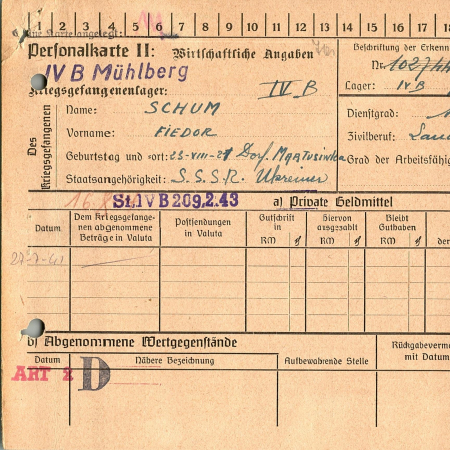 1 2 3 4 5 6 7 8 9 10 11 12 13 14 15 16 17 18
Karte angelegt:
Personalkarte II: Wirtschaftliche Angaben
IV B Mühlberg
Kriegsgefangenenlager: IV B
Beschriftung der Erkenn
Nr.
Lager: IV B
Des Kriegsgefangenen
Name: SCHUM
Vorname: FIEDOR
Geburtstag und -ort: 23-VIII-21 Dorf.
Staatsangehörigkeit: S.S.S.R.
Dienstgrad:
Zivilberuf:
Grad der Arbeitsfähig
St. IV B 209, 2.43
a) Private Geldmittel
Datum
Dem Kriegsgefange-
nen abgenommene
Beträge in Valuta
Postsendungen
in Valuta
Gutschrift
in
RM
Hiervon
ausgezahlt
RM
Bleibt
Guthaben
RM
der
b) Abgenommene Wertgegenstände
Datum
Nähere Bezeichnung
Aufbewahrende Stelle
Rückgabeverme
mit Datum
ART x D